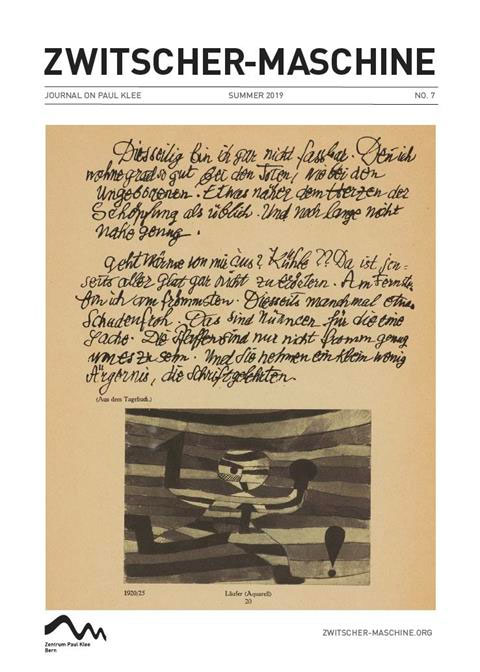 ZWITSCHER-MASCHINE
JOURNAL ON PAUL KLEE SUMMER 2019 NO. 7
Diesseitig bin ich gar nicht fassbar. Denn ich
wohne grad so gut bei den Toten, wie bei den
Ungeborenen. Etwas näher dem Herzen der
Schöpfung als üblich. Und noch lange nicht
nahe genug.
Geht Wärme von mir aus? Kühle?? Da ist jen-
seits aller Glut gar nicht zu erörtern. Am Fernsten
bin ich am frömmsten. Diesseits manchmal etwas
Schadenfroh. Das sind Nüancen für die eine
Sache. Die Pfaffen sind nur nicht fromm genug
um es zu sehn. Und sie nehmen ein klein wenig
Ärgernis, die Schriftgelehrten.
(Aus dem Tagebuch.)
1920/25 Läufer (Aquarell)
20
Zentrum Paul Klee
Bern
ZWITSCHER-MASCHINE.ORG